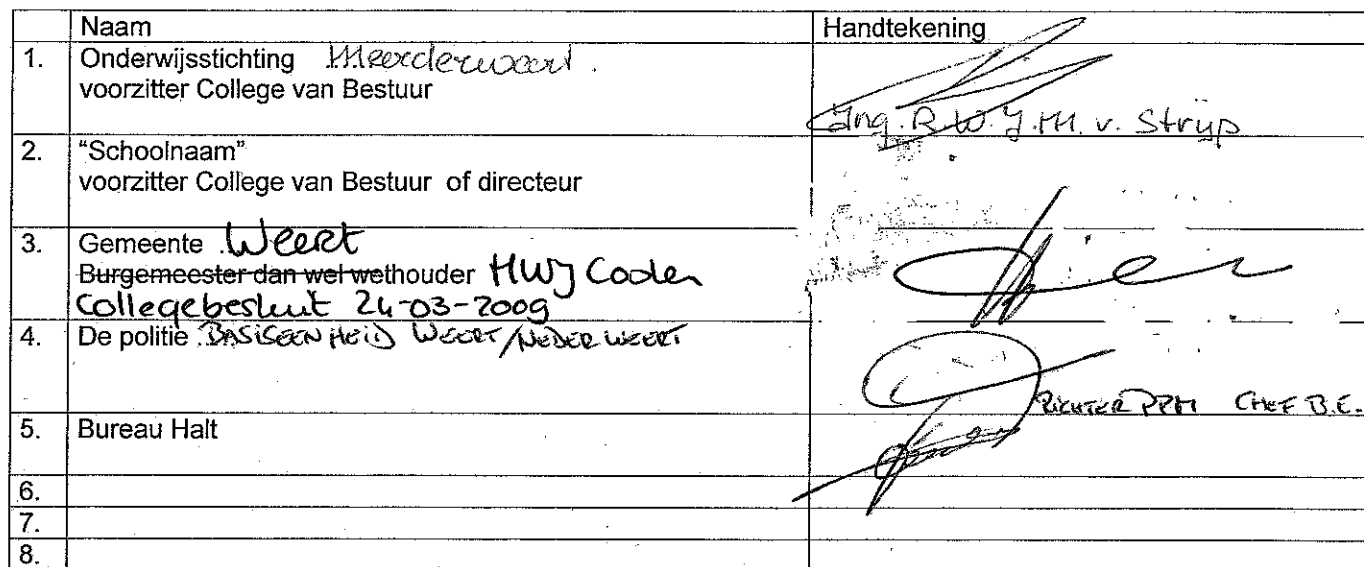 Naam Handtekening
1. Onderwijsstichting Meerderweert.
voorzitter College van Bestuur
Ing. R.W.J.M. v. Strijp
2. "Schoolnaam"
voorzitter College van Bestuur of directeur
3. Gemeente Weert
Burgemeester dan wel wethouder HWJ Coolen
Collegebesluit 24-03-2009
4. De politie BASISEENHEID WEERT/NEDERWEERT
RICHTER PPM CHEF B.E.
5. Bureau Halt
6.
7.
8.